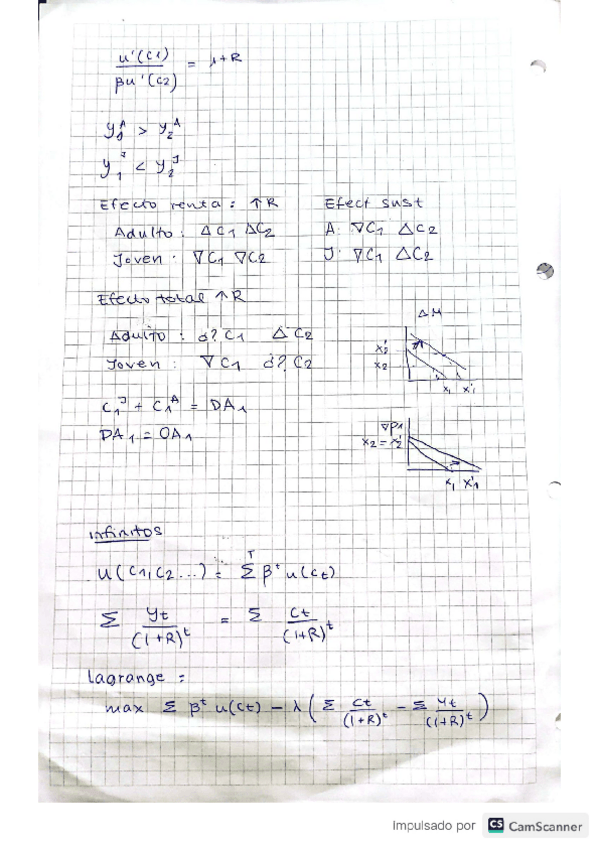 u'(c1)
βu'(c2)
= 1+R
y1^A > y2^A
y1^J < y2^J
Efecto renta : ↑R
Adulto : Δ C1 Δ C2
Joven : ∇ C1 ∇ C2
Efect sust
A: ∇C1 ΔC2
J: ∇C1 ΔC2
Efecto total ↑R
Adulto : ¿? C1 Δ C2
Joven : ∇ C1 ¿? C2
ΔM
x2'
x2
x1 x'1
C1^J + C1^A = DA1
DA1 = OA1
∇P1
x2 = x2'
x1 x'1
infinitos
U(C1, C2 ...) = Σ^T β^t u(ct)
Σ yt/(1+R)^t = Σ Ct/(1+R)^t
Lagrange :
max Σ β^t u(ct) - λ ( Σ Ct/(1+R)^t - Σ yt/((1+R)^t )
Impulsado por CS CamScanner